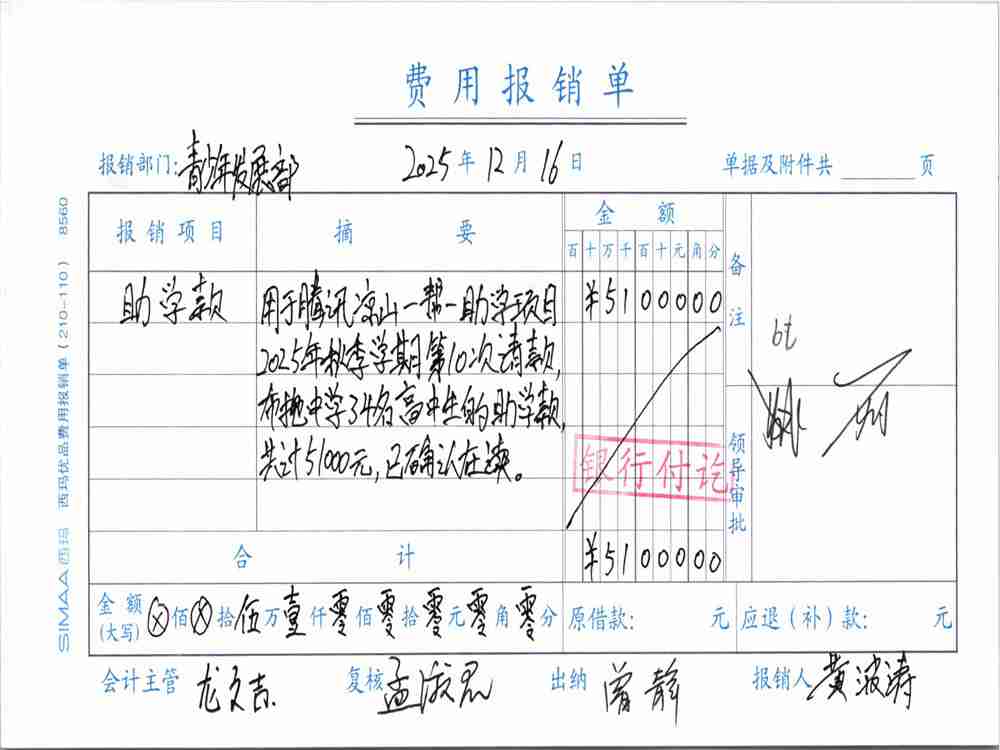 费用报销单
报销部门:青少年发展部 2025年12月16日 单据及附件共 页
报销项目 摘要 金额 备注
百十万千百十元角分
助学款 用于腾讯凉山一帮一助学项目 ¥5100000
2025年秋季学期第10次请款,
布拖中学34名高中生的助学款,
共计51000元,已确认在读。
银行付讫
领导审批
合计 ¥5100000
金额(大写) ⊗佰⊗拾伍万壹仟零佰零拾零元零角零分 原借款: 元 应退(补)款: 元
会计主管 龙文吉 复核 孟淑君 出纳 曾静 报销人 黄波涛
SIMAA西玛 西玛优品费用报销单(210-110) 8560